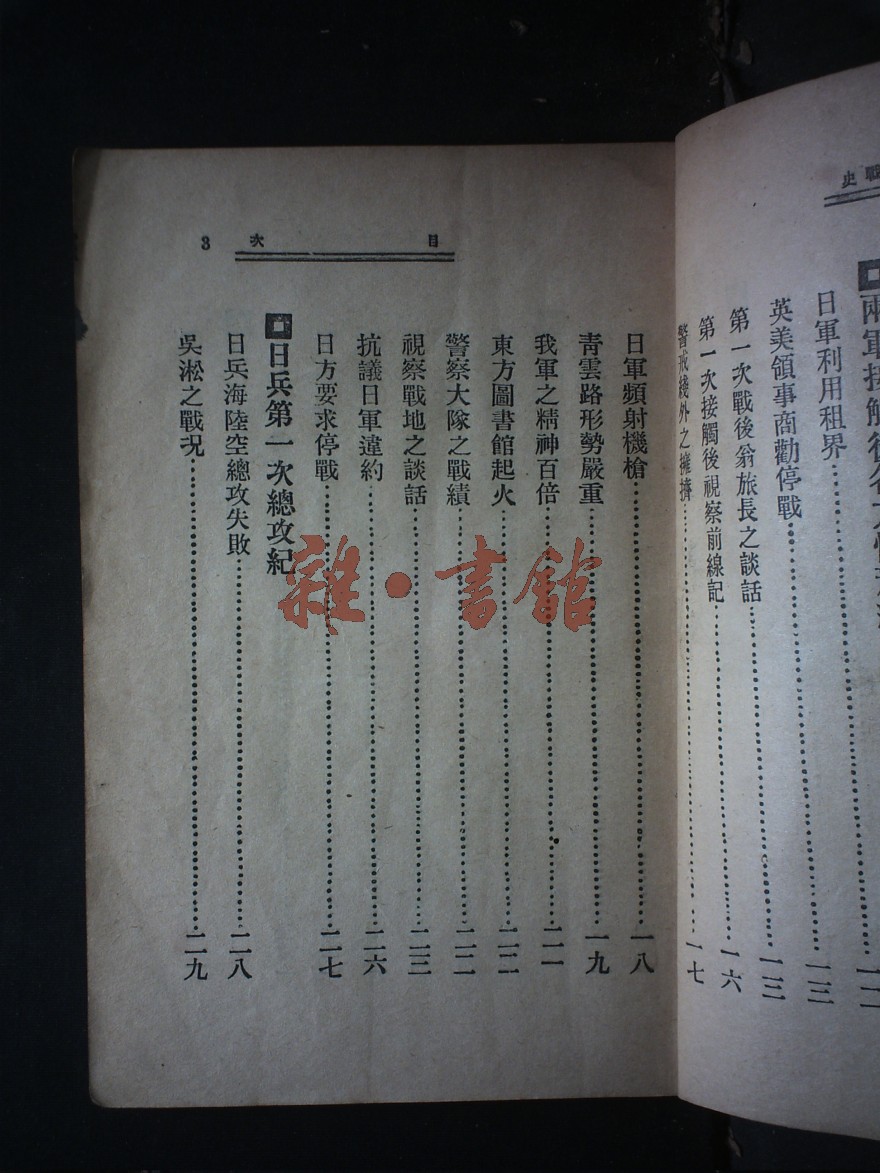 戰史
日軍利用租界…………一三
英美領事商勸停戰…………一三
第一次戰後翁旅長之談話…………一六
第一次接觸後視察前線記
警戒綫外之擁擠…………一七
目次 3
日軍頻射機槍…………一八
青雲路形勢嚴重…………一九
我軍之精神百倍…………二一
東方圖書館起火…………二二
警察大隊之戰績…………二二
視察戰地之談話…………二三
抗議日軍違約…………二六
日方要求停戰…………二七
日兵第一次總攻紀
日兵海陸空總攻失敗…………二八
吳淞之戰况…………二九
雜·書館